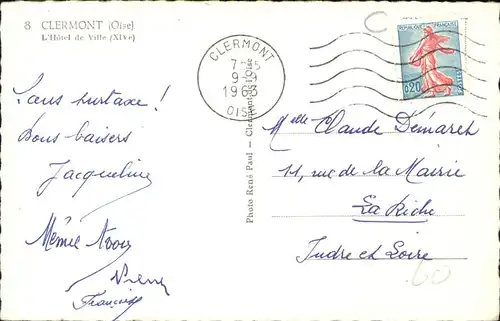 8 CLERMONT (Oise)
L'Hôtel de Ville (XIVe)
CLERMONT
9-9
1963
OISE
RÉPUBLIQUE FRANÇAISE
0,20
POSTES
Photo René Paul - Clermont de l'Oise
Sans surtaxe !
Bons baisers
Jacqueline
Mémée
Pierre
Francine
Melle Claude Démareh
11, rue de la Mairie
La Riche
Indre et Loire
60